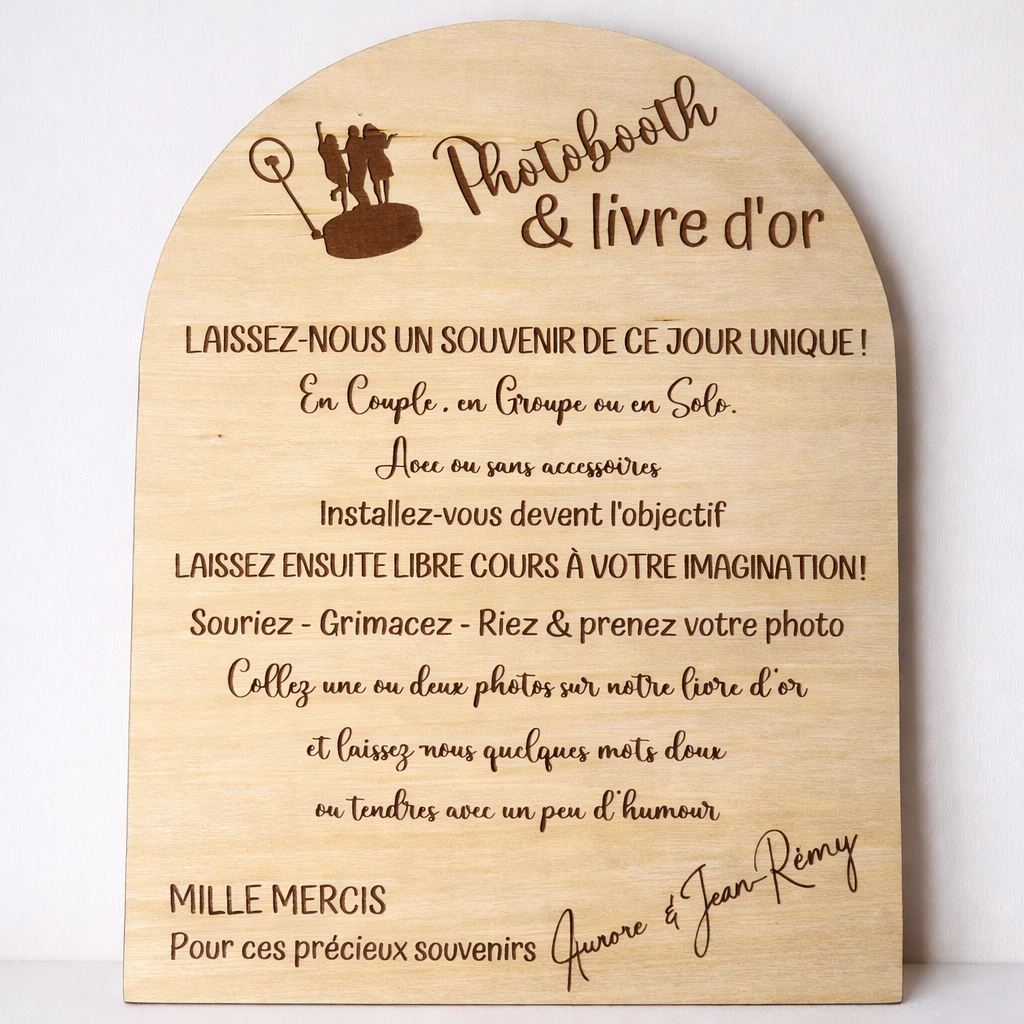 Photobooth
& livre d'or
LAISSEZ-NOUS UN SOUVENIR DE CE JOUR UNIQUE !
En Couple, en Groupe ou en Solo.
Avec ou sans accessoires
Installez-vous devent l'objectif
LAISSEZ ENSUITE LIBRE COURS À VOTRE IMAGINATION!
Souriez - Grimacez - Riez & prenez votre photo
Collez une ou deux photos sur notre livre d'or
et laissez-nous quelques mots doux
ou tendres avec un peu d'humour
MILLE MERCIS
Pour ces précieux souvenirs
Aurore & Jean-Rémy